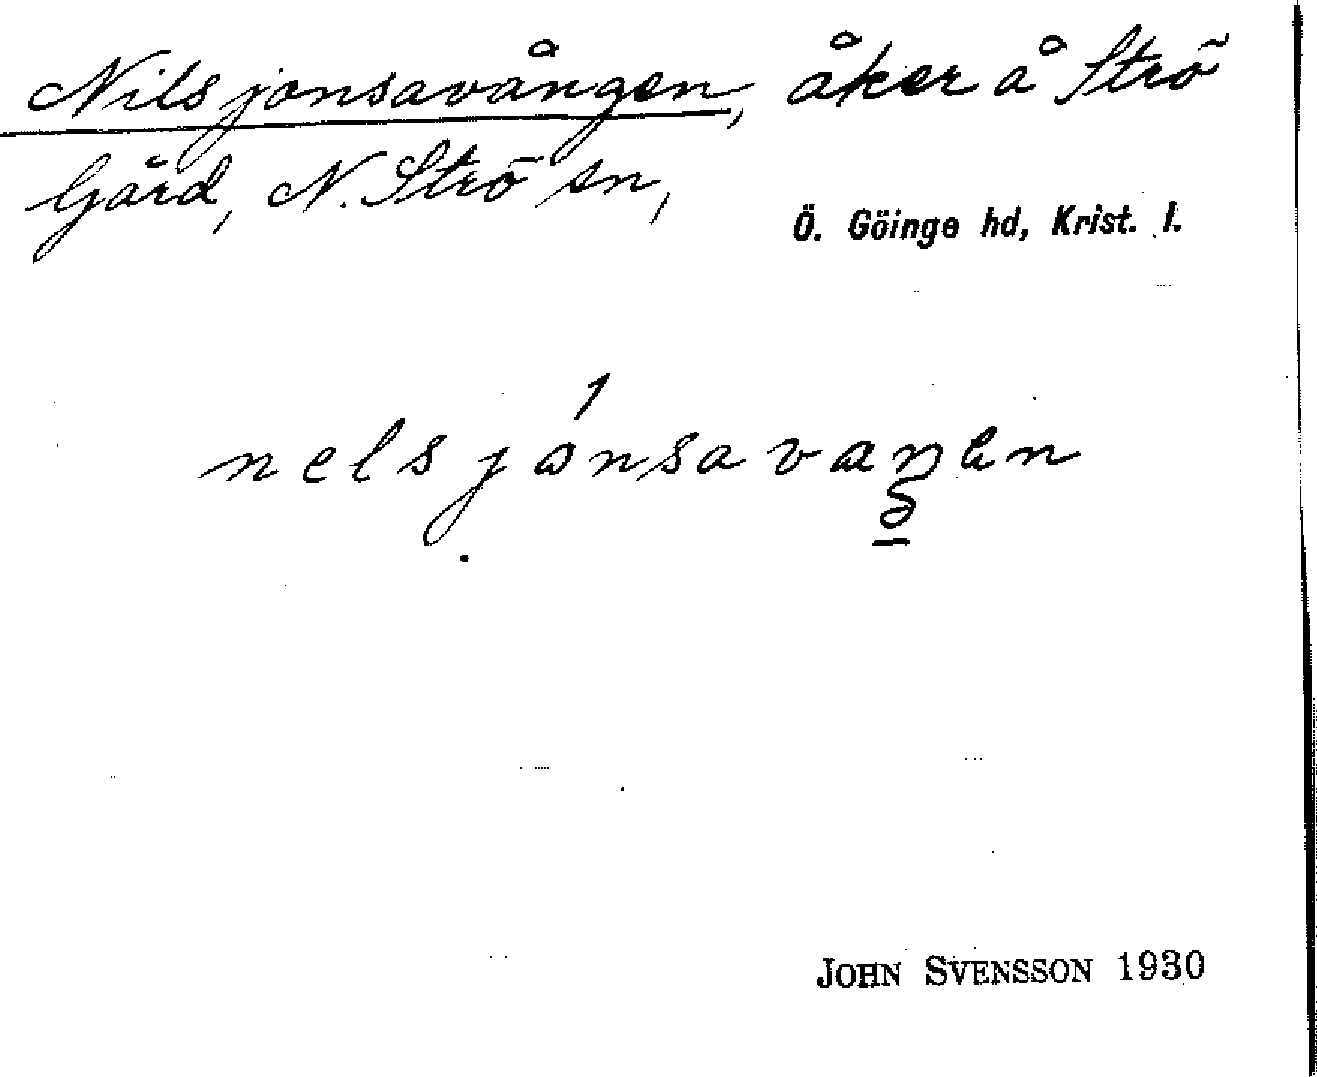 Nilsjonsavången, åker å Strö
Gård, N. Strö sn,
Ö. Göinge hd, Krist. l.
nelsjónsavaŋen
JOHN SVENSSON 1930